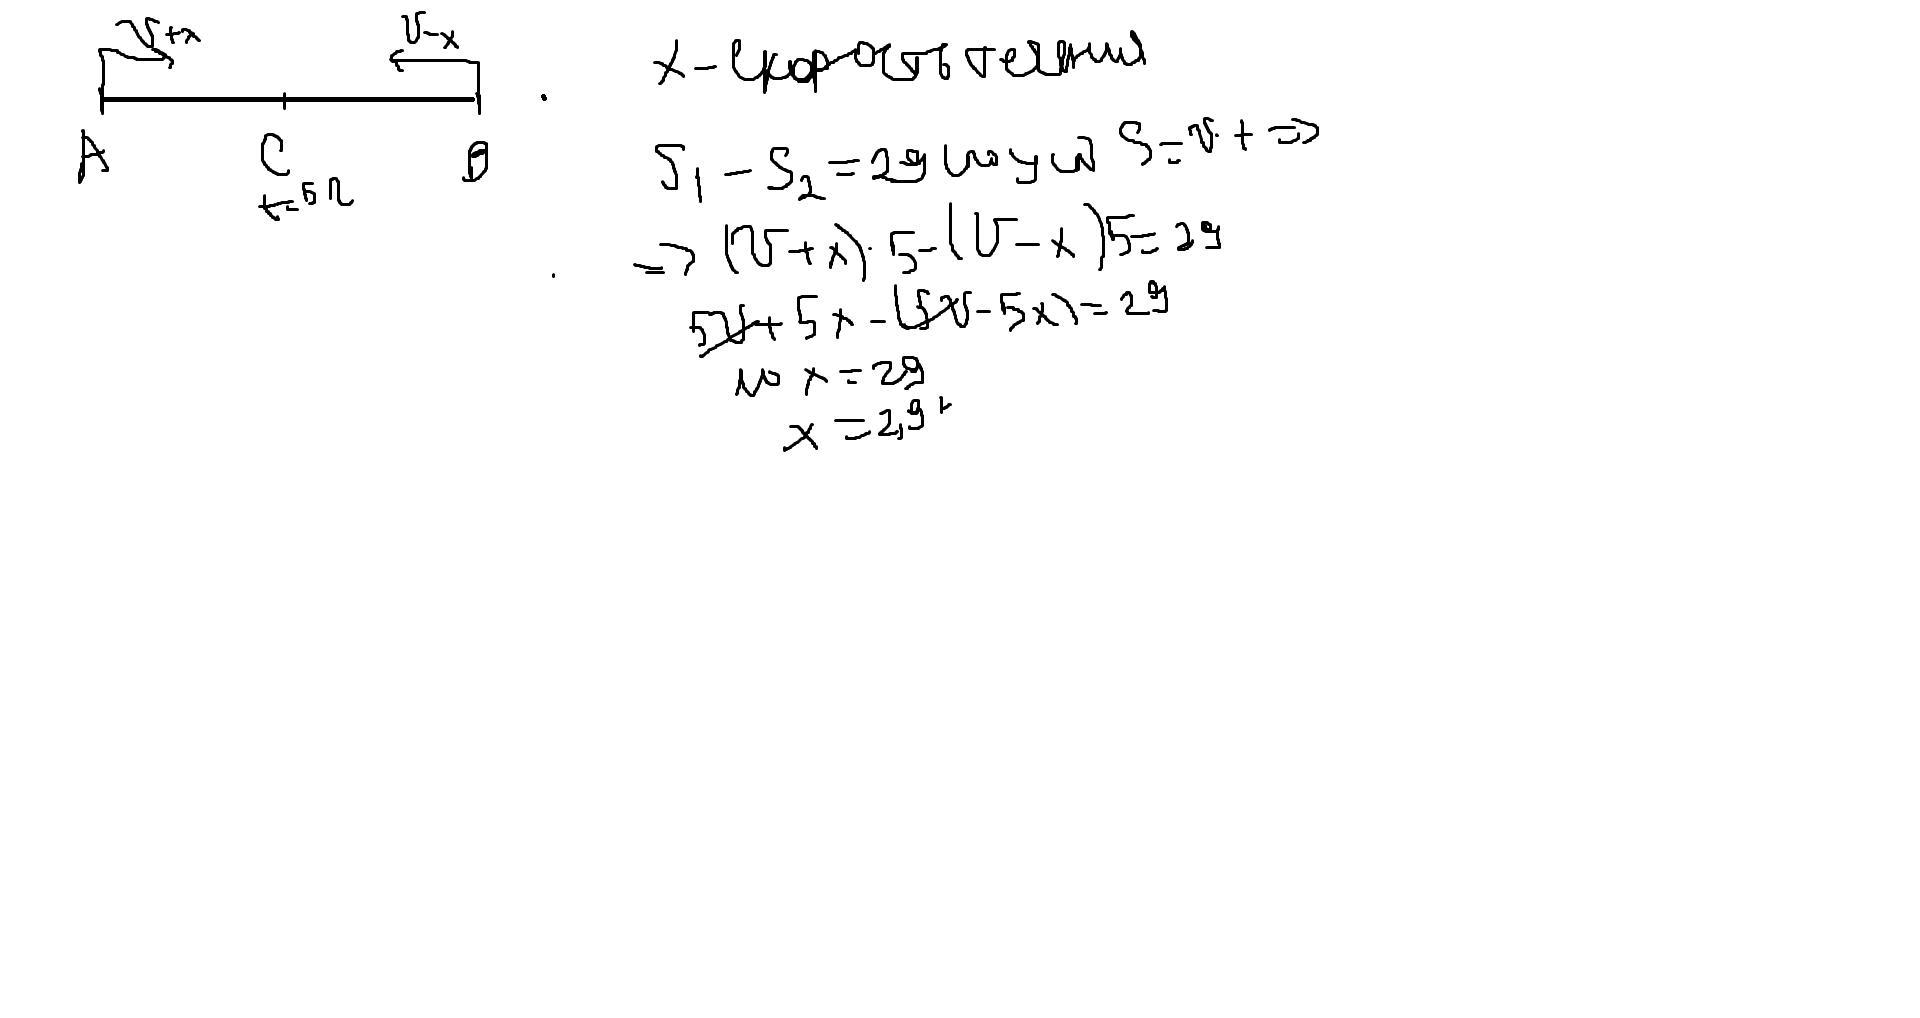 V+x V-x
A C B
t=5ч
x - скорость течения
S₁ - S₂ = 29 S = v t =>
=> (V+x)·5-(V-x)5=29
5V+5x-(5V-5x)=29
10 x = 29
x = 2,9